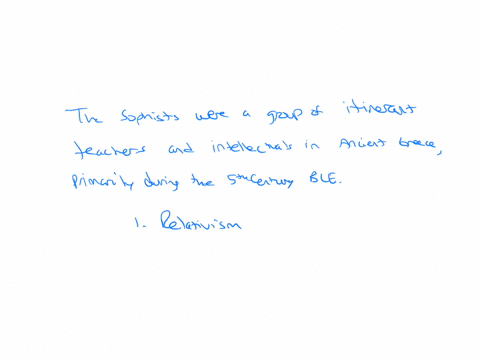 The Sophists were a group of itinerant
teachers and intellectuals in Ancient Greece,
primarily during the 5th Century BCE.
1. Relativism